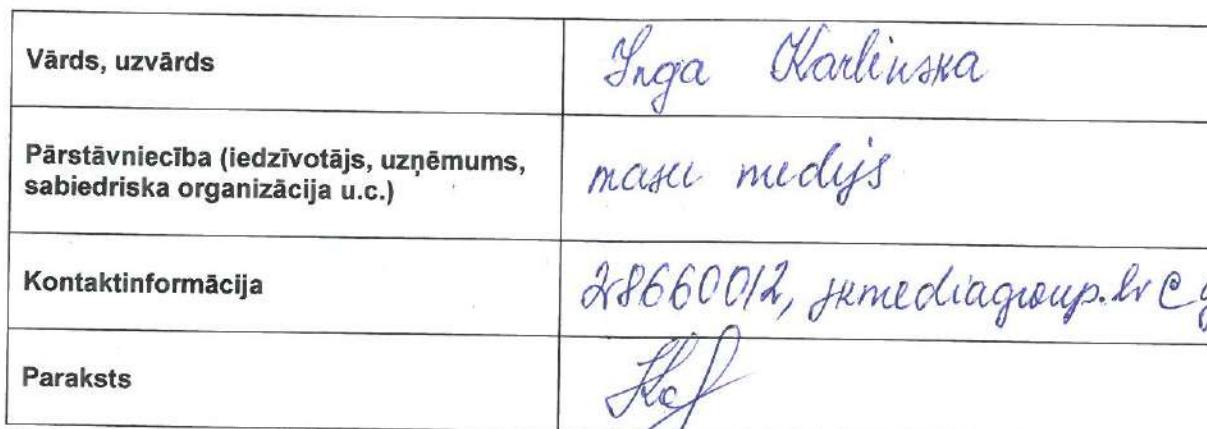 Vārds, uzvārds
Inga Karlinska
Pārstāvniecība (iedzīvotājs, uzņēmums,
sabiedriska organizācija u.c.)
masu medijs
Kontaktinformācija
28660012,
Paraksts